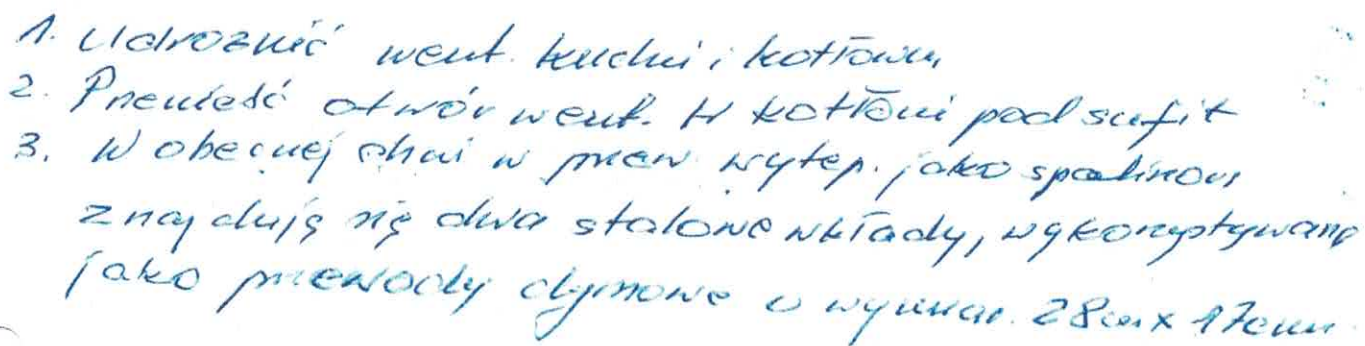 1. Udrożnić went. kuchni i kotłowni
2. Przenieść otwór went. w kotłowni pod sufit
3. W obecnej chwi w przew. występ. jako spalinowy
znajdują się dwa stalowe wkłady, wykorzystywane
jako przewody dymowe o wymiar. 28cm x 17cm.